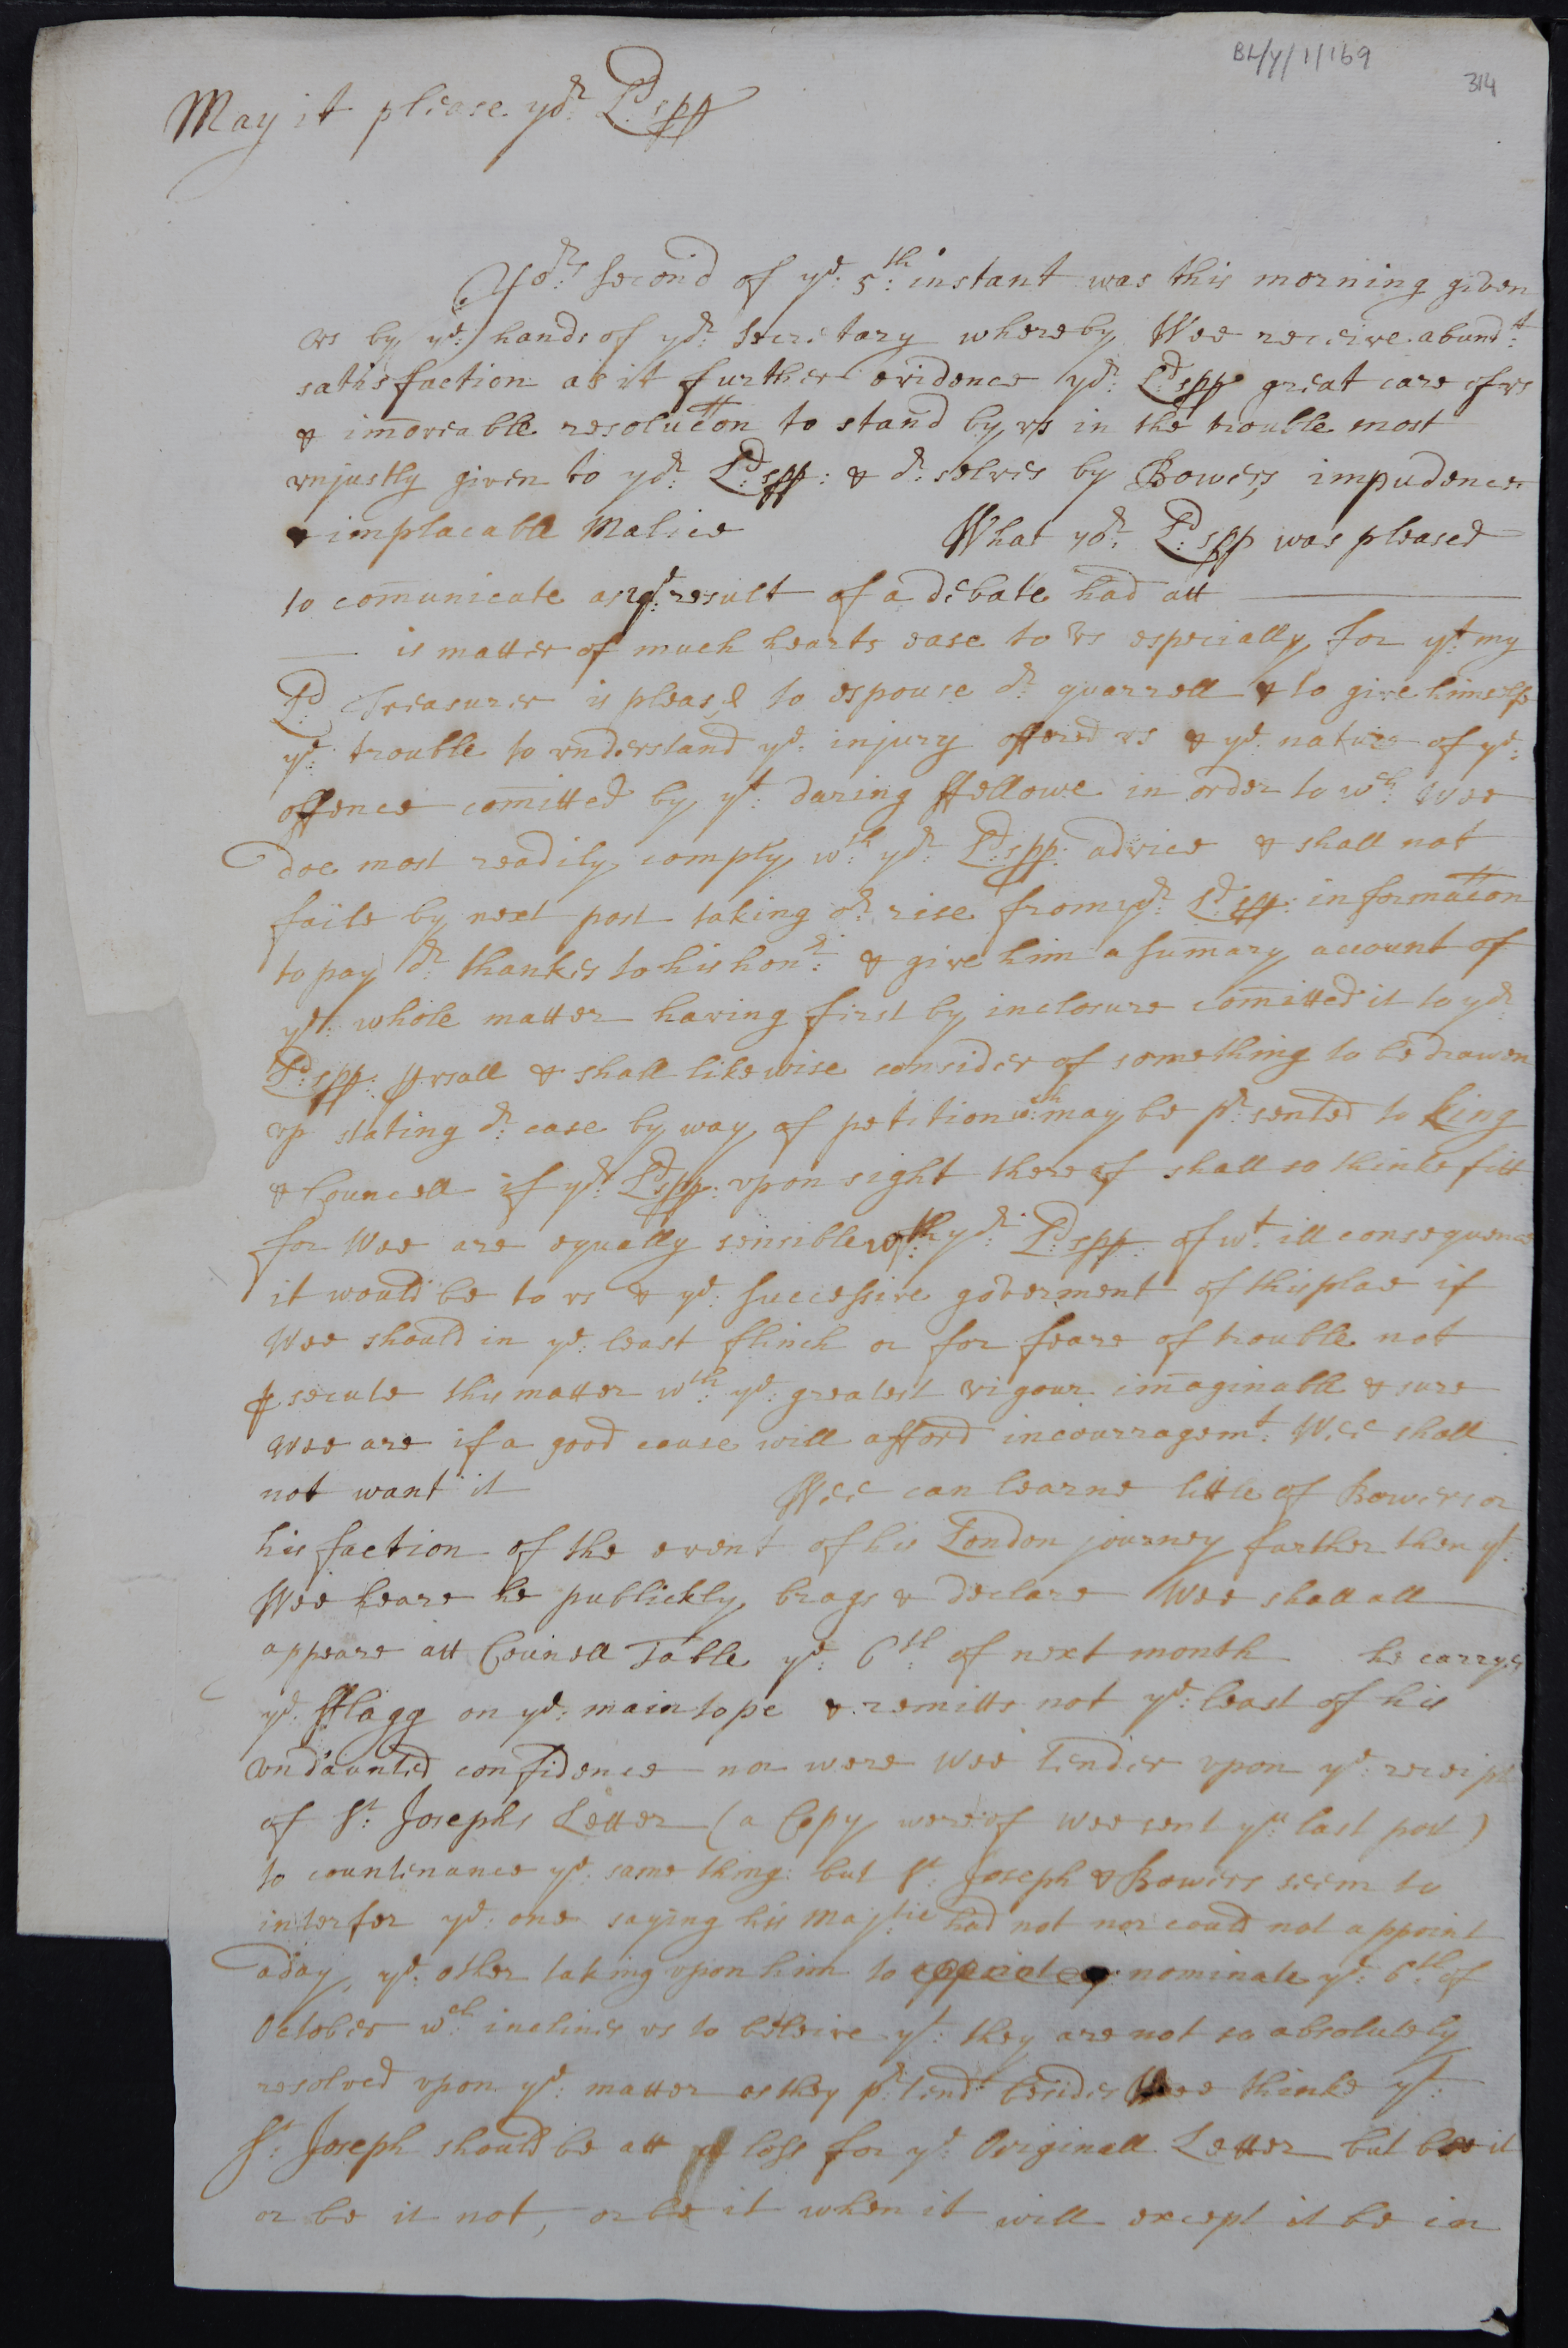 BL/Y/1/169
314
May it please yor: Ld:spp
Yors: second of ye: 5th: instant was this morning given
vs by ye: hands of yor: Secretary whereby Wee receive abundt:
satisfaction as it further evidence yor: Ld:spp great care of vs
& im̄oveable resoluc̄on to stand by vs in the trouble most
vnjustly given to yor: Ld:spp: & or: selves by Bowers impudence
& implacable Malice What yor: Ld:spp was pleased
to com̄unicate as ye: result of a debate had att
is matter of much hearts ease to Vs especially for yt: my
Ld: Treasurer is pleased to espouse or: quarrell & to give himselfe
ye: trouble to vnderstand ye: injury offered vs & ye: nature of ye:
offence com̄itted by yt: daring ffellowe in order to wch: Wee
doe most readily comply wth: yor: Ld:spp: advice & shall not
faile by next post taking or: rise from yor: Ld:spp: informac̄on
to pay or: thankes to his honr: & give him a sum̄ary account of
ye: whole matter having first by inclosure com̄itted it to yor:
Ld:spp: pervsall & shall likewise consider of something to be drawen
vp stating or: case by way of petition wch: may be pr:sented to King
& Councell if yor: Ld:spp: vpon sight thereof shall so thinke fitt
for Wee are equally sensible wth: yor: Ld:spp: of wt: ill consequence
it would be to vs & ye: successive goverment of this place if
Wee should in ye: least flinch or for feare of trouble not
psecute this matter wth: ye: greatest vigour im̄aginable & sure
Wee are if a good cause will afford incourragemt: Wee shall
not want it Wee can learne little of Bowers or
his faction of the event of his London journey further then yt:
Wee heare he publickly brags & declare Wee shall all
appeare att Councell Table ye: 6th: of next month he carryes
ye: fflagg on ye: maintope & remitts not ye: least of his
vndaunted confidence nor were Wee tender vpon ye: receipt
of Sr: Josephs Letter (a Copy wereof Wee sent yu: last post)
to countenance ye: same thing: but Sr: Joseph & Bowers seem to
interfer ye: one saying his Majtie: had not nor could not appoint
a day, ye: other taking vpon him to nominate ye: 6th: of
October wch: inclines vs to beleive yt: they are not so absolutely
resolved vpon ye: matter as they pr:tend besides Wee thinke yt:
Sr: Joseph should be att a loss for ye: Originall Letter but bee it
or be it not, or be it when it will except it be in